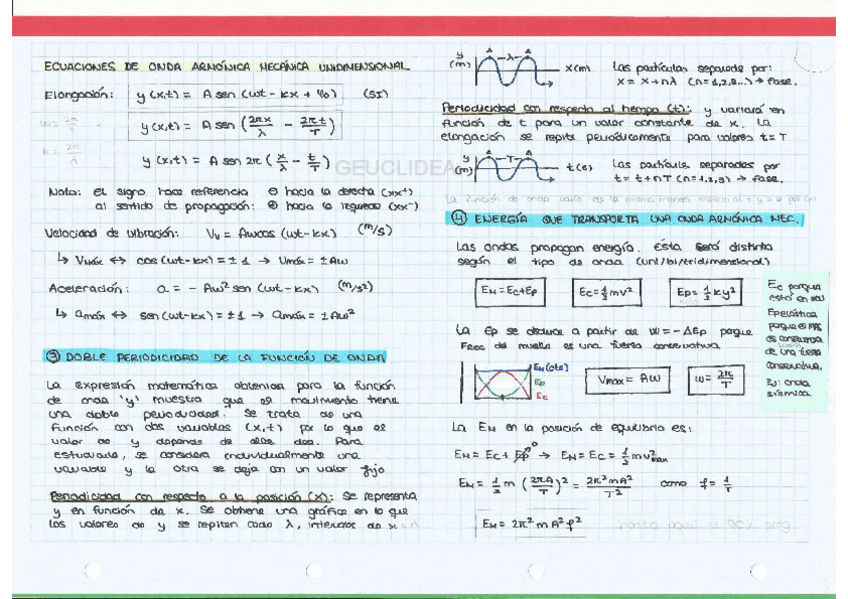 ECUACIONES DE ONDA ARMÓNICA MECÁNICA UNIDIMENSIONAL
Elongación: y(x,t) = A sen (ωt - kx + φ₀) (SI)
ω = 2π/T
y(x,t) = A sen (2πx/λ - 2πt/T)
k = 2π/λ
y(x,t) = A sen 2π (x/λ - t/T)
GEUCLIDEA
Nota: el signo hace referencia ⊖ hacia la derecha (xx⁺)
al sentido de propagación: ⊕ hacia la izquierda (xx⁻)
Velocidad de vibración: Vᵥ = Aωcos (ωt - kx) (m/s)
↳ Vmáx ↔ cos(ωt-kx) = ±1 → Vmáx = ±Aω
Aceleración: a = - Aω² sen (ωt - kx) (m/s²)
↳ amáx ↔ sen(ωt-kx) = ±1 → amáx = ±Aω²
③ DOBLE PERIODICIDAD DE LA FUNCIÓN DE ONDA
La expresión matemática obtenida para la función
de onda 'y' muestra que el movimiento tiene
una doble periodicidad. Se trata de una
función con dos variables (x,t) por lo que el
valor de y depende de ellas dos. Para
estudiarlo, se considera individualmente una
variable y la otra se deja con un valor fijo
Periodicidad con respecto a la posición (x): Se representa
y en función de x. Se obtiene una gráfica en la que
los valores de y se repiten cada λ, intervalos de x
y (m) A -λ- A x(m)
Las partículas separadas por:
x = x + nλ (n=1,2,3...) → fase.
Periodicidad con respecto al tiempo (t): y variará en
función de t para un valor constante de x. La
elongación se repite periódicamente para valores t = T
y (m) A -T- A t(s)
Las partículas separadas por
t = t + nT (n=1,2,3) → fase.
La función de onda varía de la misma manera respecto al
④ ENERGÍA QUE TRANSPORTA UNA ONDA ARMÓNICA MEC.
Las ondas propagan energía. Ésta será distinta
según el tipo de onda (uni/bi/tridimensional)
Eм = Ec + Ep
Ec = ½ mv²
Ep = ½ ky²
Ec porque
está en
Epelástica
porque el MAS
es consecuencia
de una fuerza
conservativa.
Ej: onda
sísmica
La Ep se deduce a partir de W = -ΔEp porque
Frec del muelle es una fuerza conservativa.
Eм (cte)
Ep
Ec
Vmax = Aω
ω = 2π/T
La Eм en la posición de equilibrio es:
Eм = Ec + Ep⁰ → Eм = Ec = ½ mv²max
Eм = ½ m (2πA/T)² = 2π²mA²/T² como f = 1/T
Eм = 2π² m A² f²
hasta aquí el